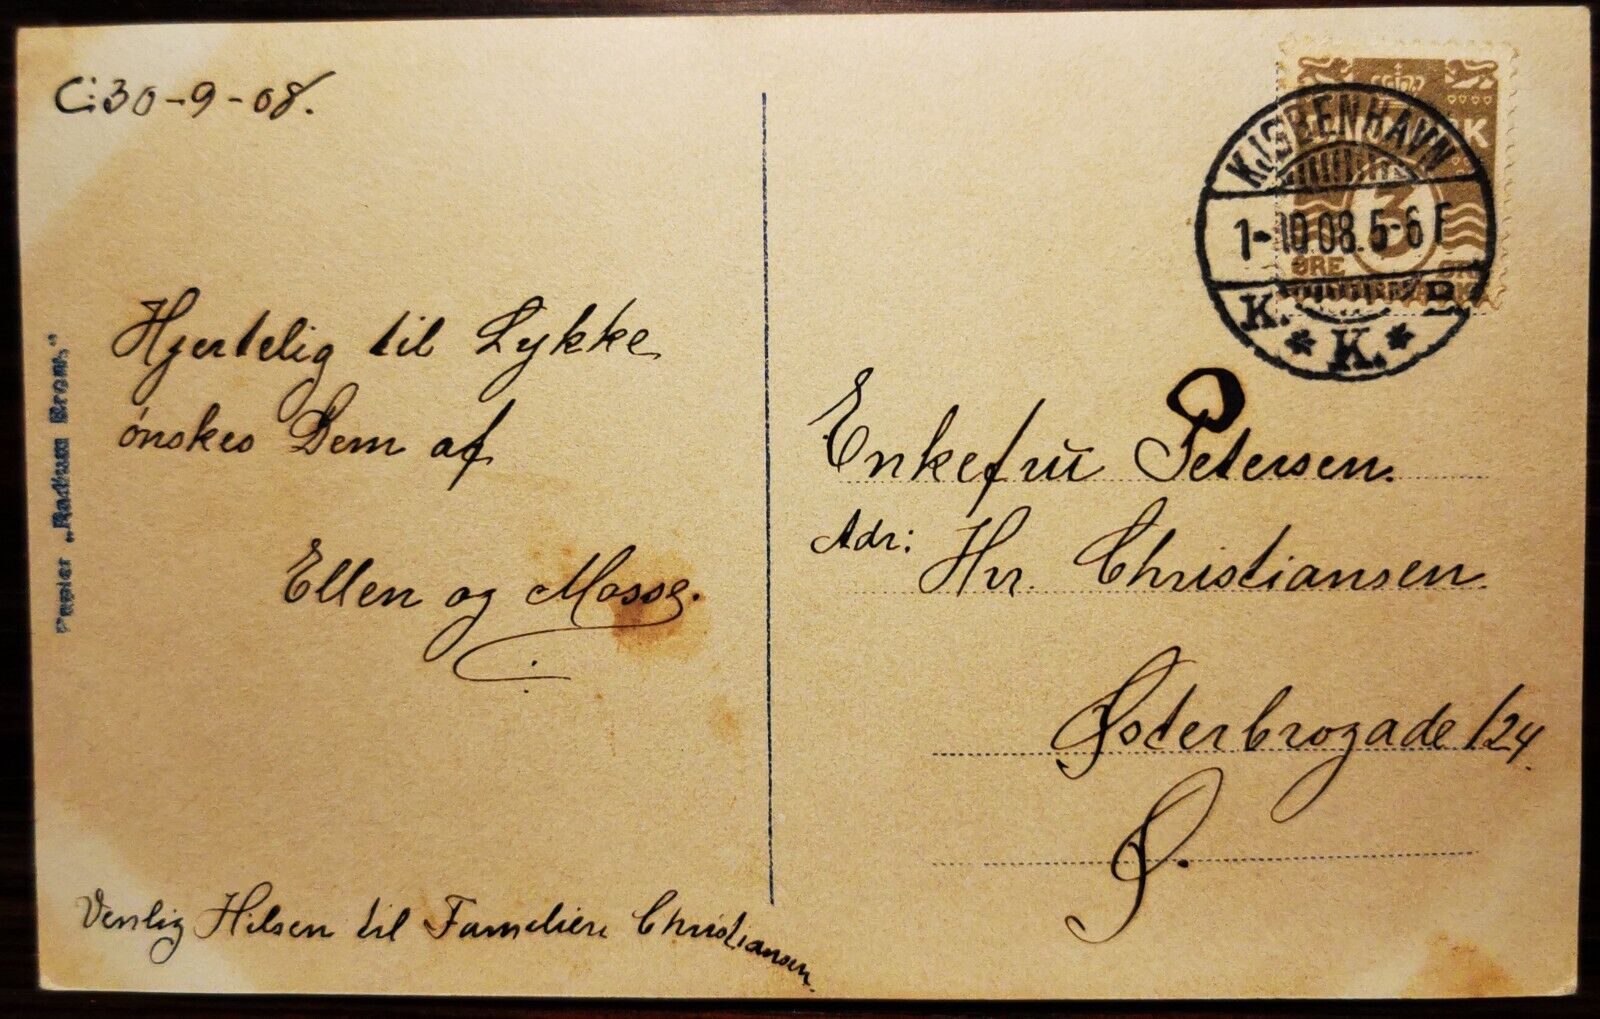 C: 30-9-08.
Hjertelig til Lykke
ønskes Dem af
Ellen og Mosse.
Venlig Hilsen til Familien Christiansen.
Papier „Radium Brom."
KJØBENHAVN
1-10 08. 5-6 F
K. K. B
3
ØRE ØRE
Enkefrü Petersen.
Adr: Hr. Christiansen.
Østerbrogade 124.
Ø.